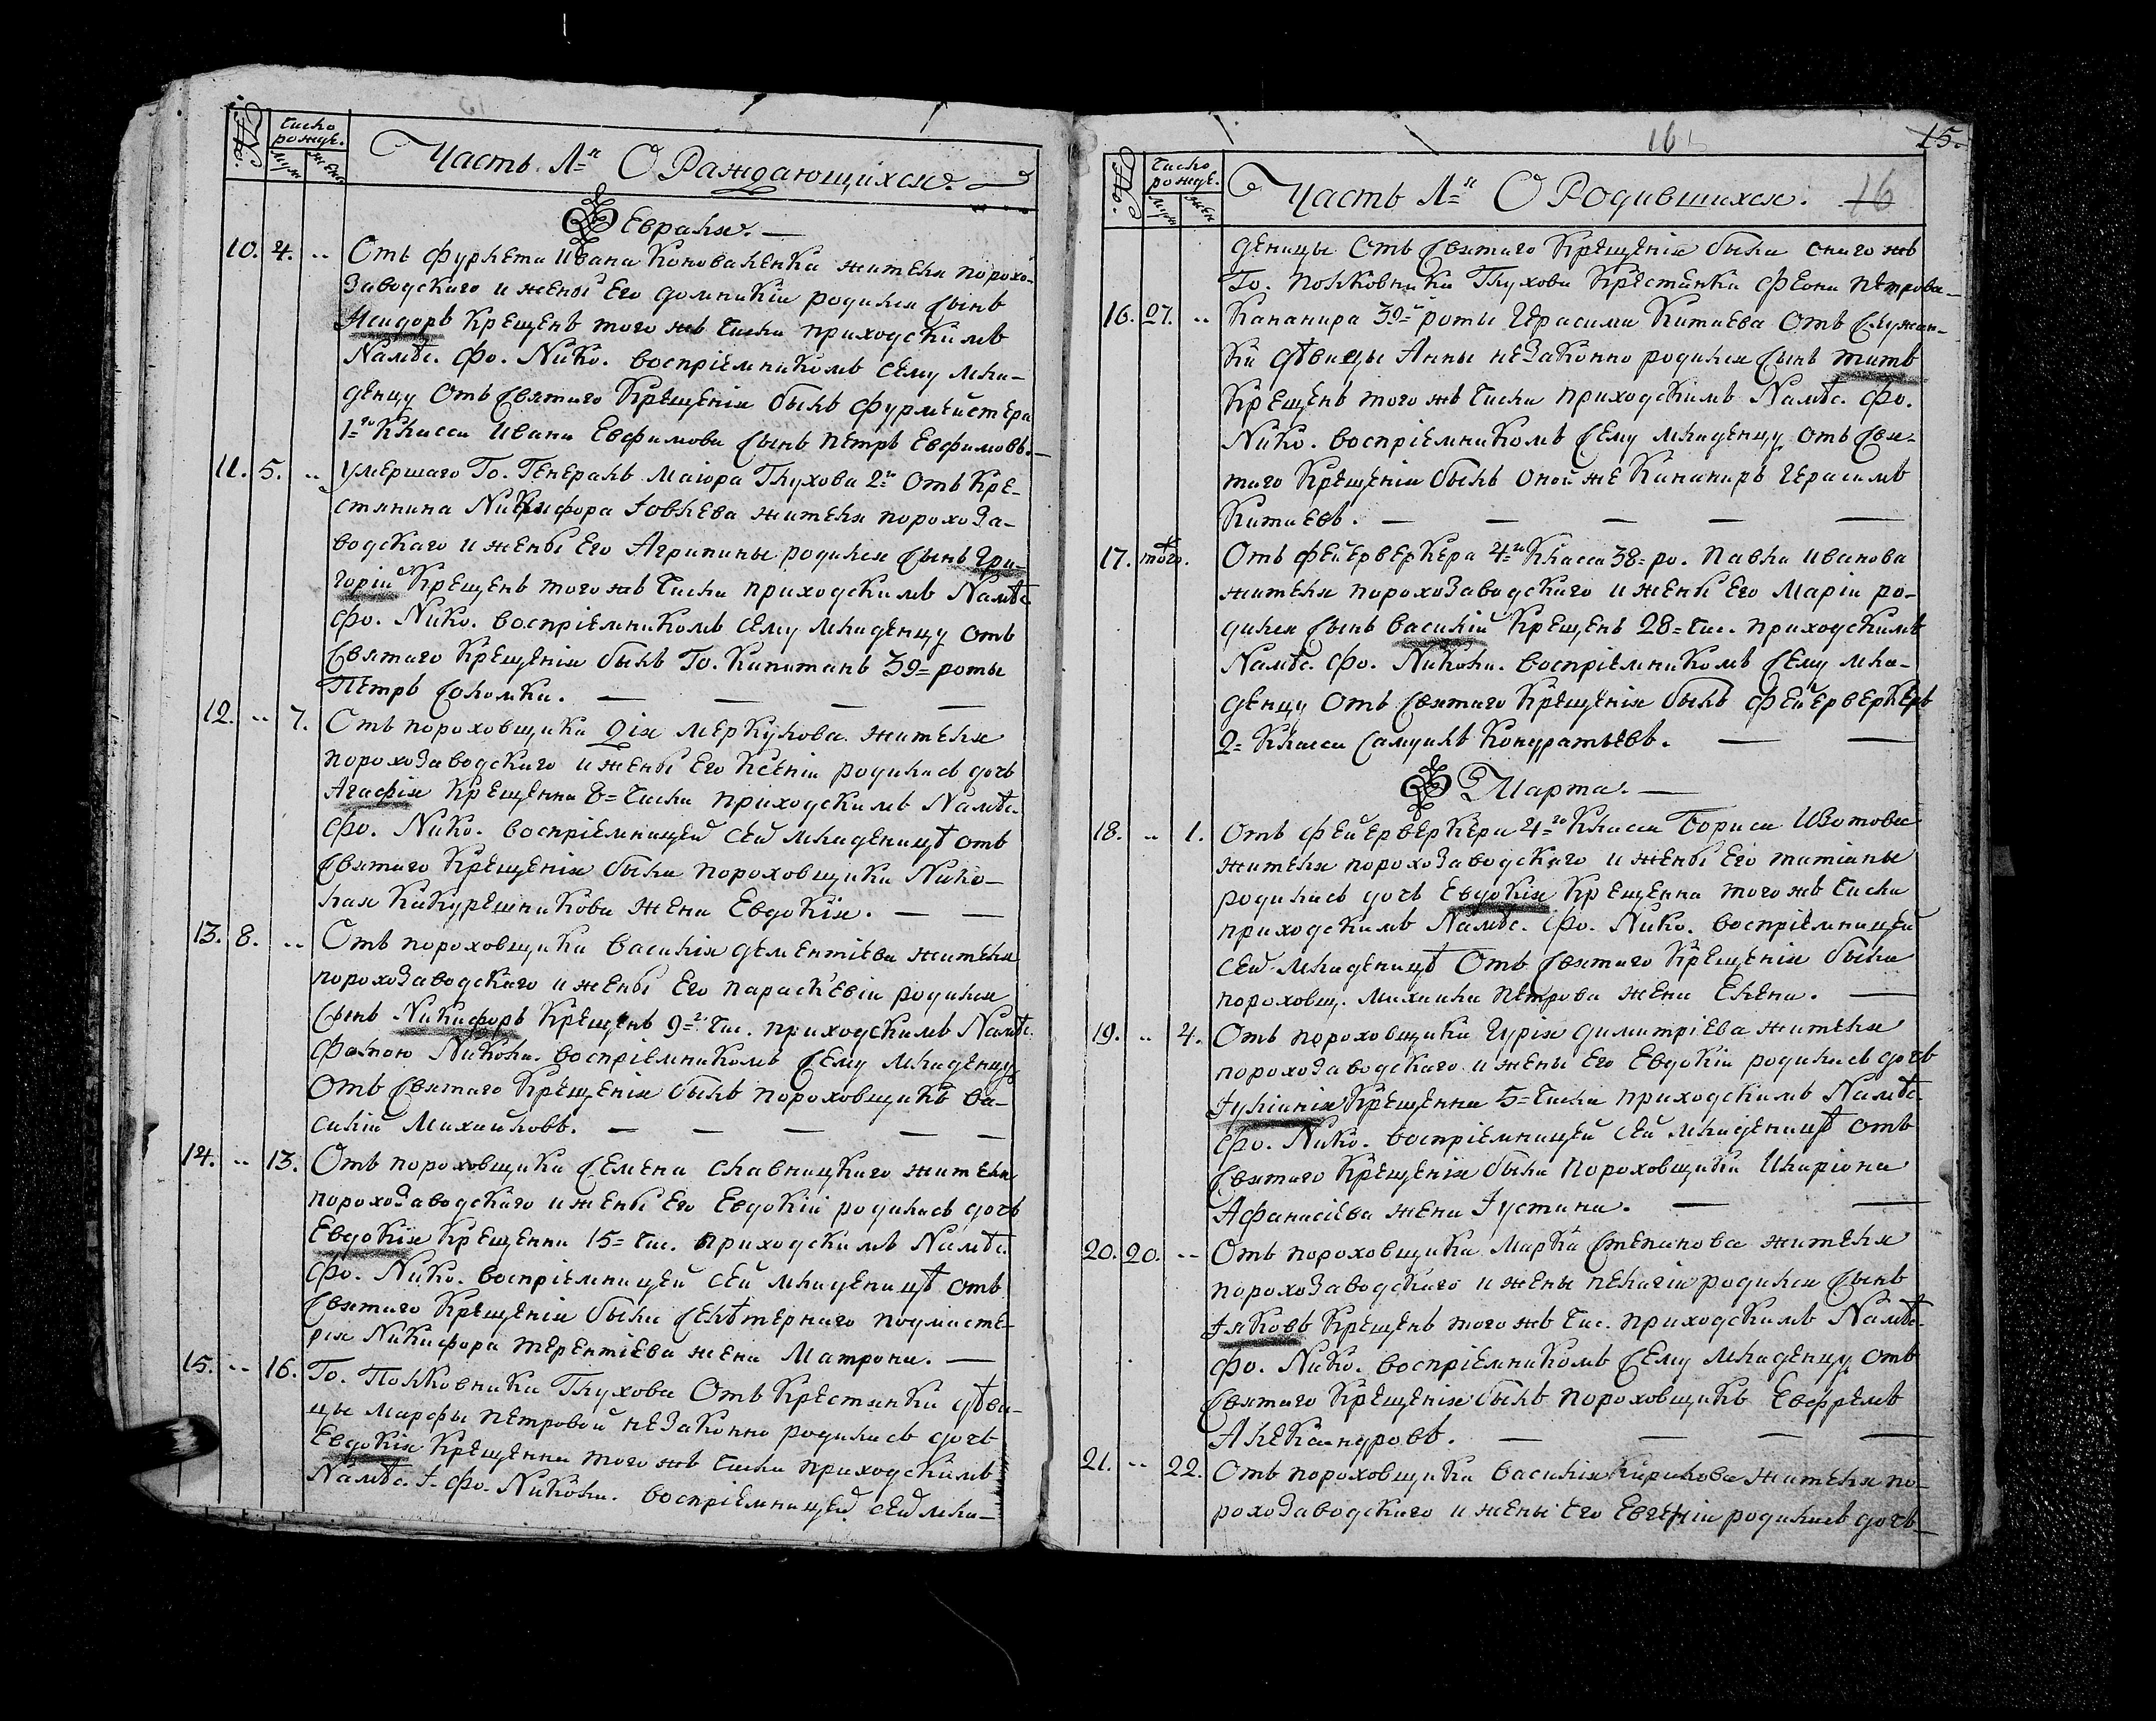 №. Число рожде. Муж. Жен. Часть 1=я О Раждающихся.
Февраля.
10. 4. .. Отъ фурлета Ивана Коноваленка жителя порохо-
заводскаго и жены Его домникіи родился сынъ
Исидоръ Крещенъ того жъ числа приходскимъ
Намѣс. Фо. Нико. воспріемникомъ сему мла-
денцу Отъ святаго Крещенія былъ фурмейстера
1=го Класса Ивана Евфимова сынъ Петръ Евфимовъ.
11. 5. .. Умершаго Го. Генералъ Маіора Глухова 2= Отъ Кре-
стянина Никифора Іовлева жителя порохоза-
водскаго и жены Его Агрипины родился сынъ Гри-
горій Крещенъ того жъ числа приходскимъ Намѣс.
Фо. Нико. воспріемникомъ сему младенцу отъ
святаго Крещенія былъ Го. Капитанъ 39= роты
Петръ Соломка.
12. .. 7. Отъ пороховщика Меркулова жителя
порохозаводскаго и жены Его Ксеніи родилась дочь
Агафія Крещенна 8= числа приходскимъ Намѣс.
Фо. Нико. воспріемницей сей младеницѣ отъ
святаго Крещенія была пороховщика Нико-
лая Кикурешникова жена Евдокія.
13. 8. .. Отъ пороховщика василія дементіева жителя
порохозаводскаго и жены Его параскевіи родился
сынъ Никифоръ Крещенъ 9= чис. приходскимъ Намѣс.
Фомою Никола. воспріемникомъ сему младенцу
Отъ святаго Крещенія былъ пороховщикъ ва-
силій Михайловъ.
14. .. 13. Отъ пороховщика семена славницкаго жителя
порохозаводскаго и жены Его Евдокіи родилась дочь
Евдокія Крещенна 15= чис. приходскимъ Намѣс.
Фо. Нико. воспріемницей сей младеницѣ отъ
святаго Крещенія была селѣтернаго подмасте-
рія Никифора терентіева жена Матрона.
15. .. 16. Го. Полковника Глухова Отъ Крестянки дѣви-
цы Марфы петровой незаконно родилась дочь
Евдокія Крещенна того жъ числа приходскимъ
Намѣс. І. Фо. Никола. воспріемницей сей мла-
16 15.
№. Число рожде. Муж. Жен. Часть 1=я О Родившихся. 16
деницы Отъ святаго Крещенія была онаго жъ
Го. полковника Глухова Крестянка Феона петрова
16. 27. .. Кананира 39= роты Герасима Китаева Отъ служан-
ки дѣвицы Анны незаконно родился сынъ титъ
Крещенъ того жъ числа приходскимъ Намѣс. Фо.
Нико. воспріемникомъ сему младенцу отъ свя-
таго Крещенія былъ оной же Кананиръ Герасимъ
Китаевъ.
17. того. Отъ фейерверкера 4=го Класса 38= ро. павла иванова
жителя порохозаводскаго и жены Его Маріи ро-
дился сынъ василій Крещенъ 28= чис. приходскимъ
Намѣс. Фо. Никола. воспріемникомъ сему мла-
денцу Отъ святаго Крещенія былъ фейерверкеръ
2= Класса самуилъ Кондратьевъ.
Марта.
18. .. 1. Отъ фейерверкера 4=го Класса Бориса Изотова
жителя порохозаводскаго и жены Его татіаны
родилась дочь Евдокія Крещенна того жъ числа
приходскимъ Намѣс. Фо. Нико. воспріемницей
сей младеницѣ Отъ святаго Крещенія была
пороховщ. михаила петрова жена Елена.
19. .. 4. Отъ пороховщика Гурія димитріева жителя
порохозаводскаго и жены Его Евдокіи родилась дочь
Іуліанія Крещенна 5= числа приходскимъ Намѣс.
Фо. Нико. воспріемницей сей младеницѣ отъ
святаго Крещенія была пороховщика Иларіона
Афанасіева жена Іустина.
20. 20. .. Отъ пороховщика марка степанова жителя
порохозаводскаго и жены пелагіи родился сынъ
Іяковъ Крещенъ того жъ чис. приходскимъ Намѣс.
Фо. Нико. воспріемникомъ сему младенцу отъ
святаго Крещенія былъ пороховщикъ Евфремъ
Александровъ.
21. .. 22. Отъ пороховщика василія Кирилова жителя по-
рохозаводскаго и жены Его Евгеніи родилась дочь